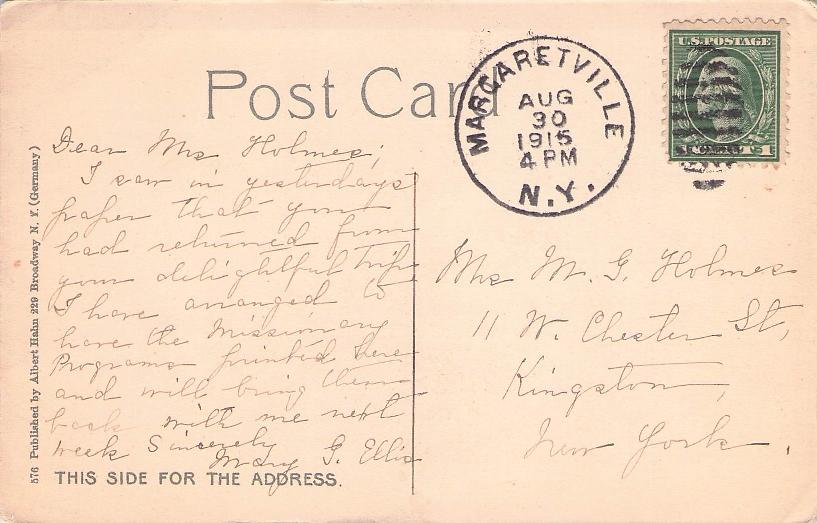 Post Card
MARGARETVILLE
AUG
30
1915
4 PM
N.Y.
U.S. POSTAGE
1
Dear Mrs Holmes;
I saw in yesterdays
paper that you
had returned from
your delightful trip
I have arranged to
have the Missionary
Programs printed here
and will bring them
back with me next
week Sincerely
Mary G. Ellis
Mrs M. G. Holmes
11 W. Chester St,
Kingston,
New York.
THIS SIDE FOR THE ADDRESS.
576 Published by Albert Hahn 229 Broadway N. Y. (Germany)